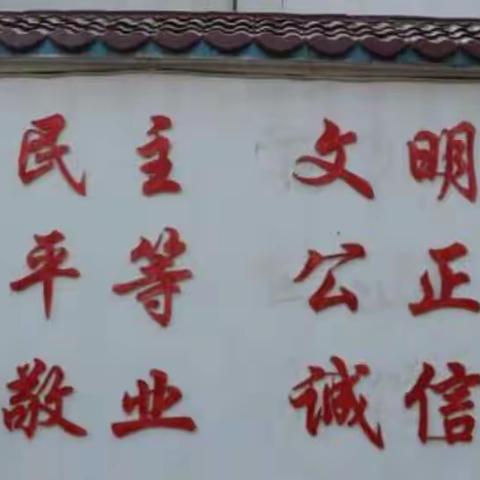 民主 文明
平等 公正
敬业 诚信